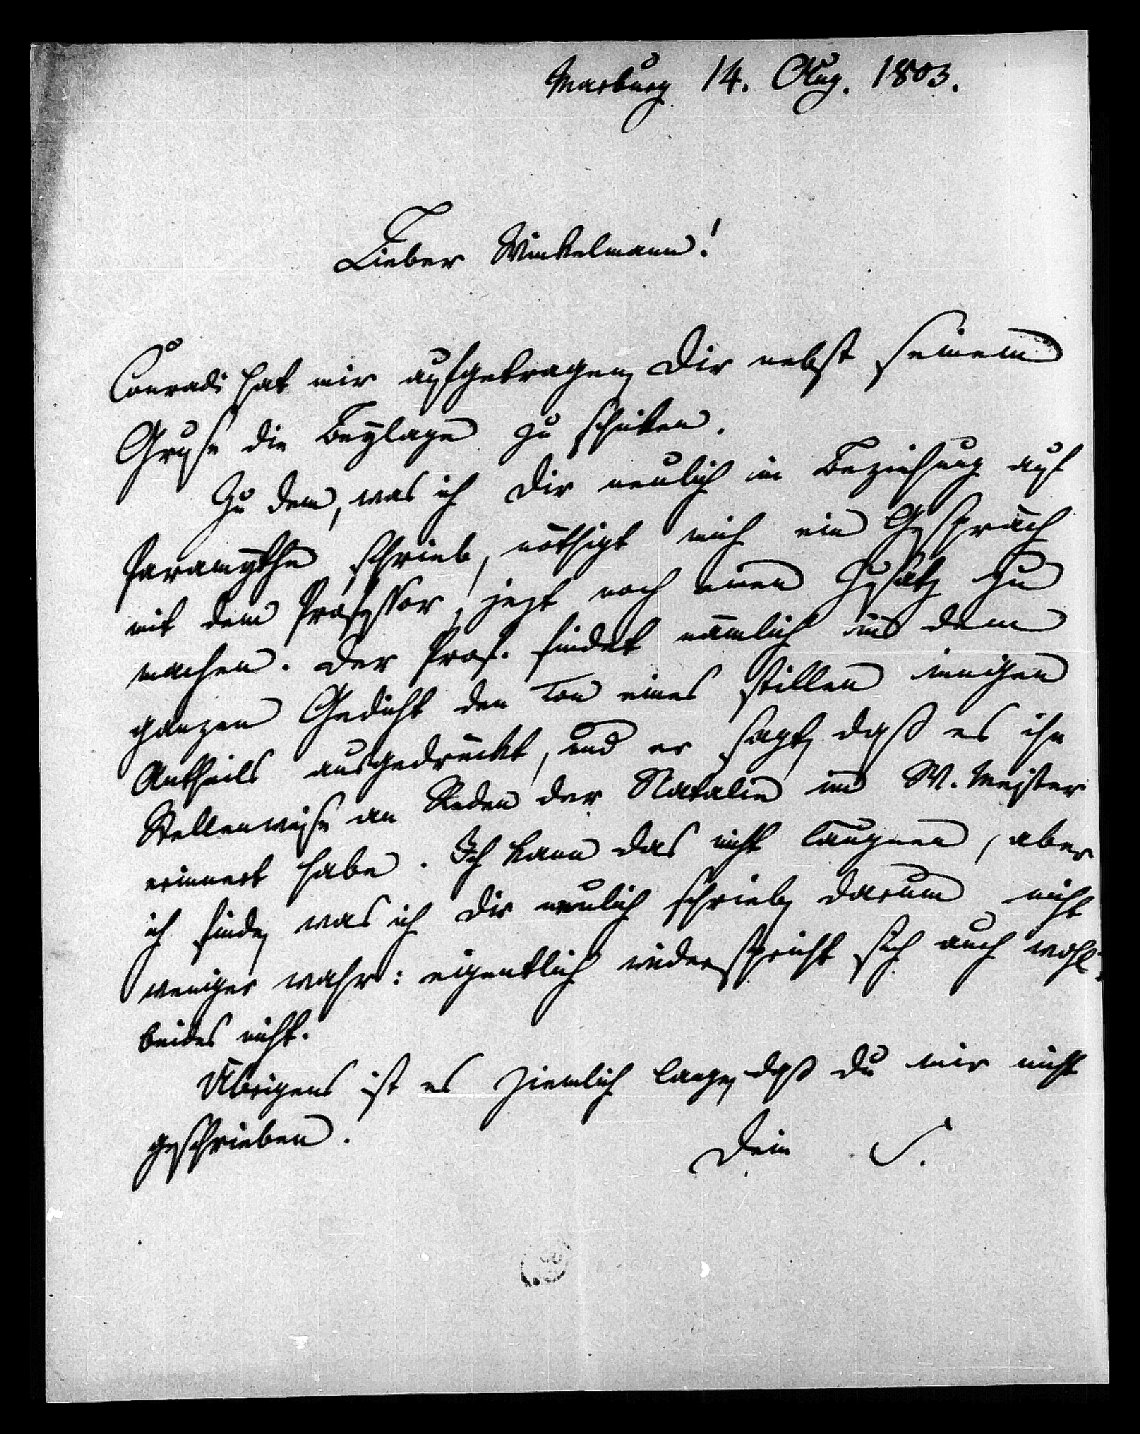 Marburg 14. Aug. 1803.
Lieber Winkelmann!
Conradi hat mir aufgetragen, Dir nebst seinem
Gruße die Beylage zu schicken.
Zu dem, was ich Dir neulich in Beziehung auf
Paramythe schrieb, nöthigt mich ein Gespräch
mit dem Professor, jezt noch einen Zusatz zu
machen. Der Prof. findet nämlich in dem
ganzen Gedicht den Ton eines stillen innigen
Antheils ausgedrückt, und er sagt, daß es ihn
Stellenweise an Reden der Natalie im W. Meister
erinnert habe. Ich kann das nicht läugnen, aber
ich finde, was ich Dir neulich schrieb, darum nicht
weniger wahr: eigentlich widerspricht sich auch wohl
beides nicht.
Übrigens ist es ziemlich lange, daß Du mir nicht
geschrieben.
Dein S.